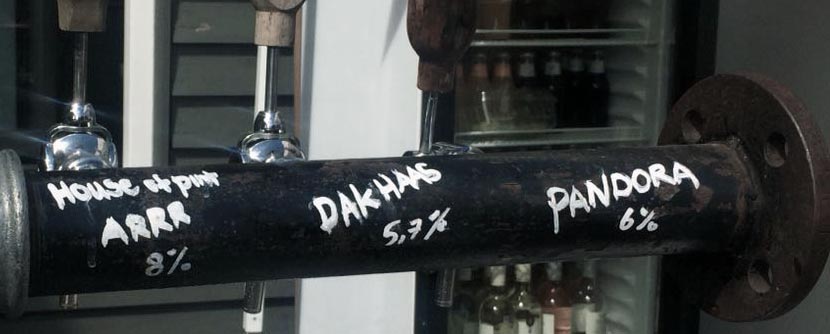 House of pint
ARRR
8%
DAKHAAS
5,7%
PANDORA
6%